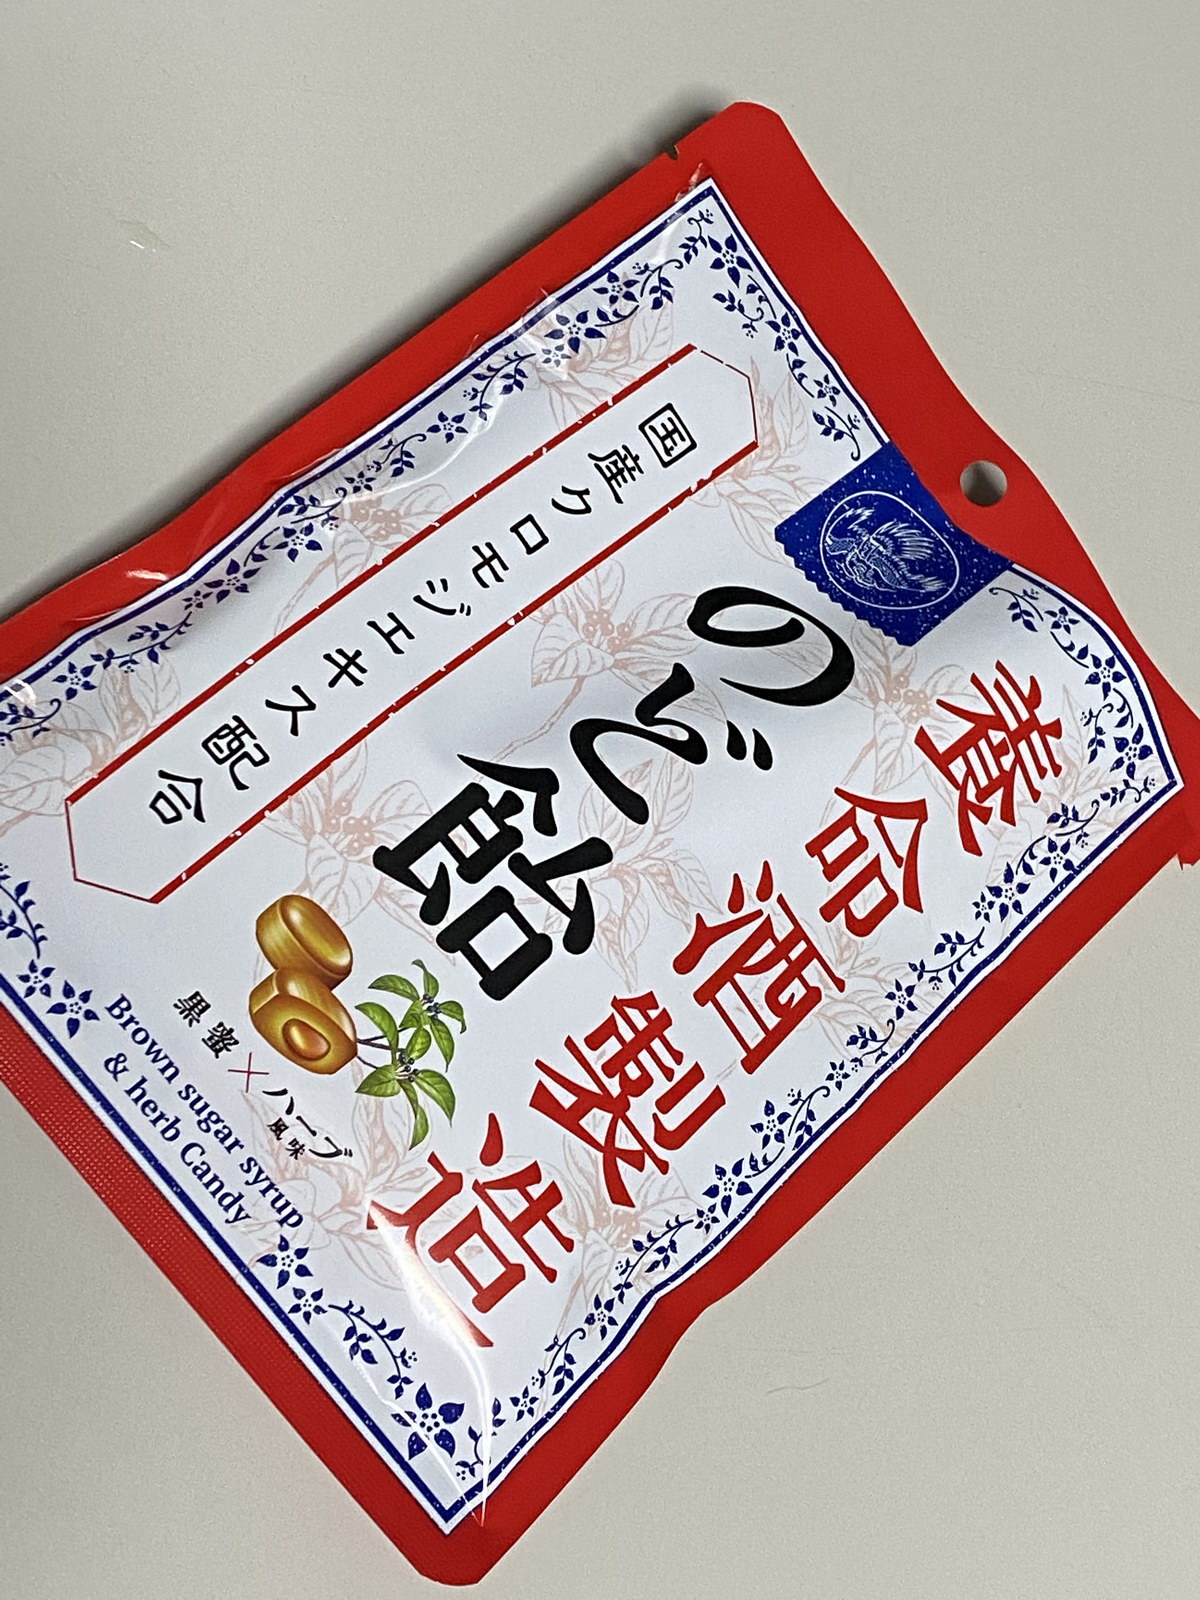 養命酒製造
のど飴
国産クロモジエキス配合
黒蜜×ハーブ風味
Brown sugar syrup
& herb Candy